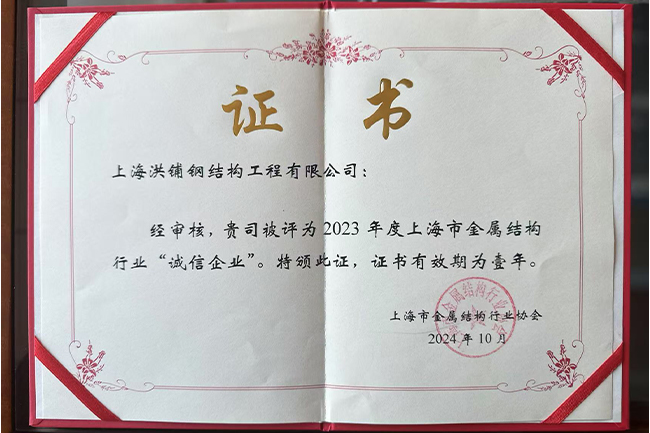 证 书
上海洪铺钢结构工程有限公司：
经审核，贵司被评为2023年度上海市金属结构
行业“诚信企业”。特颁此证，证书有效期为壹年。
上海市金属结构行业协会
2024年10月